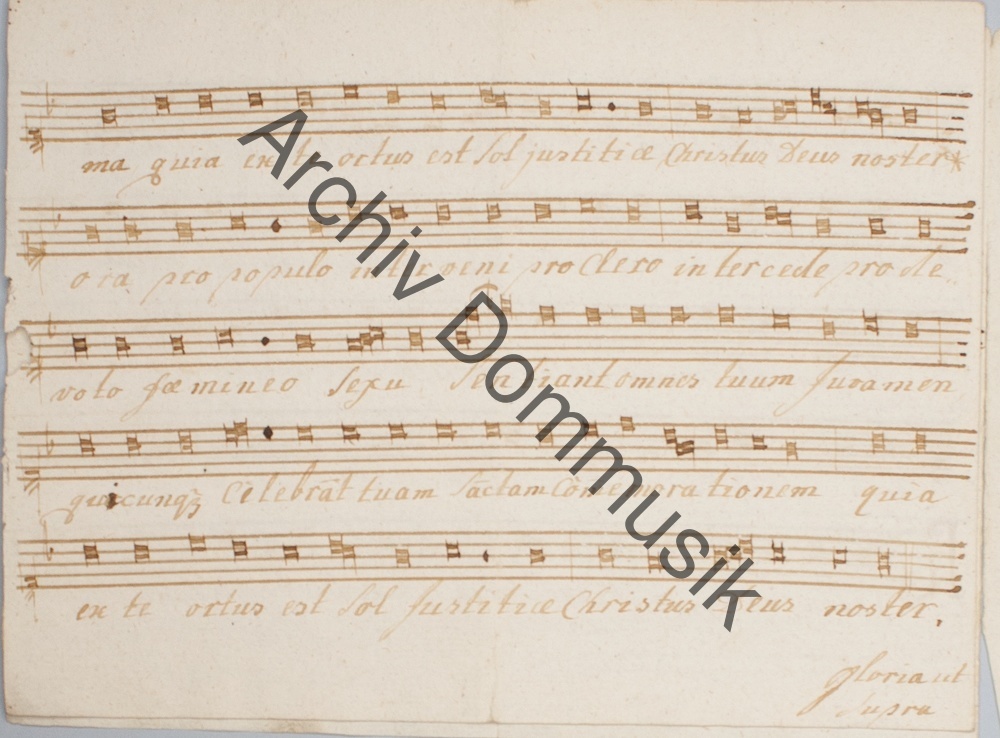 ma quia ex te ortus est Sol justitiæ Christus Deus noster*
ora pro populo interveni pro Clero intercede pro de
voto fœmineo Sexu Sentiant omnes tuum Juvamen
quicunqꝫ Celebrãt tuam Sãctam Cõmemorationem quia
ex te ortus est Sol Justitiæ Christus Deus noster.
gloria ut
Supra
Archiv Dommusik